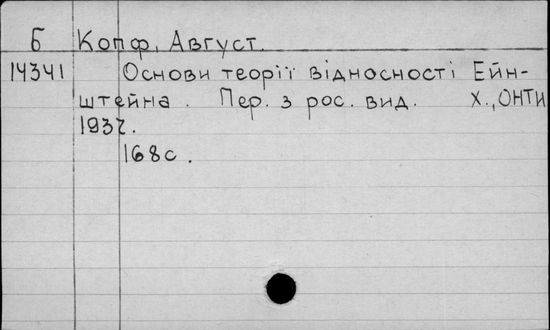 Б Копф, Август.
14341 Основи теорії відносності Ейн-
штейна. Пер. з рос. вид. Х., ОНТИ
1937.
168с.